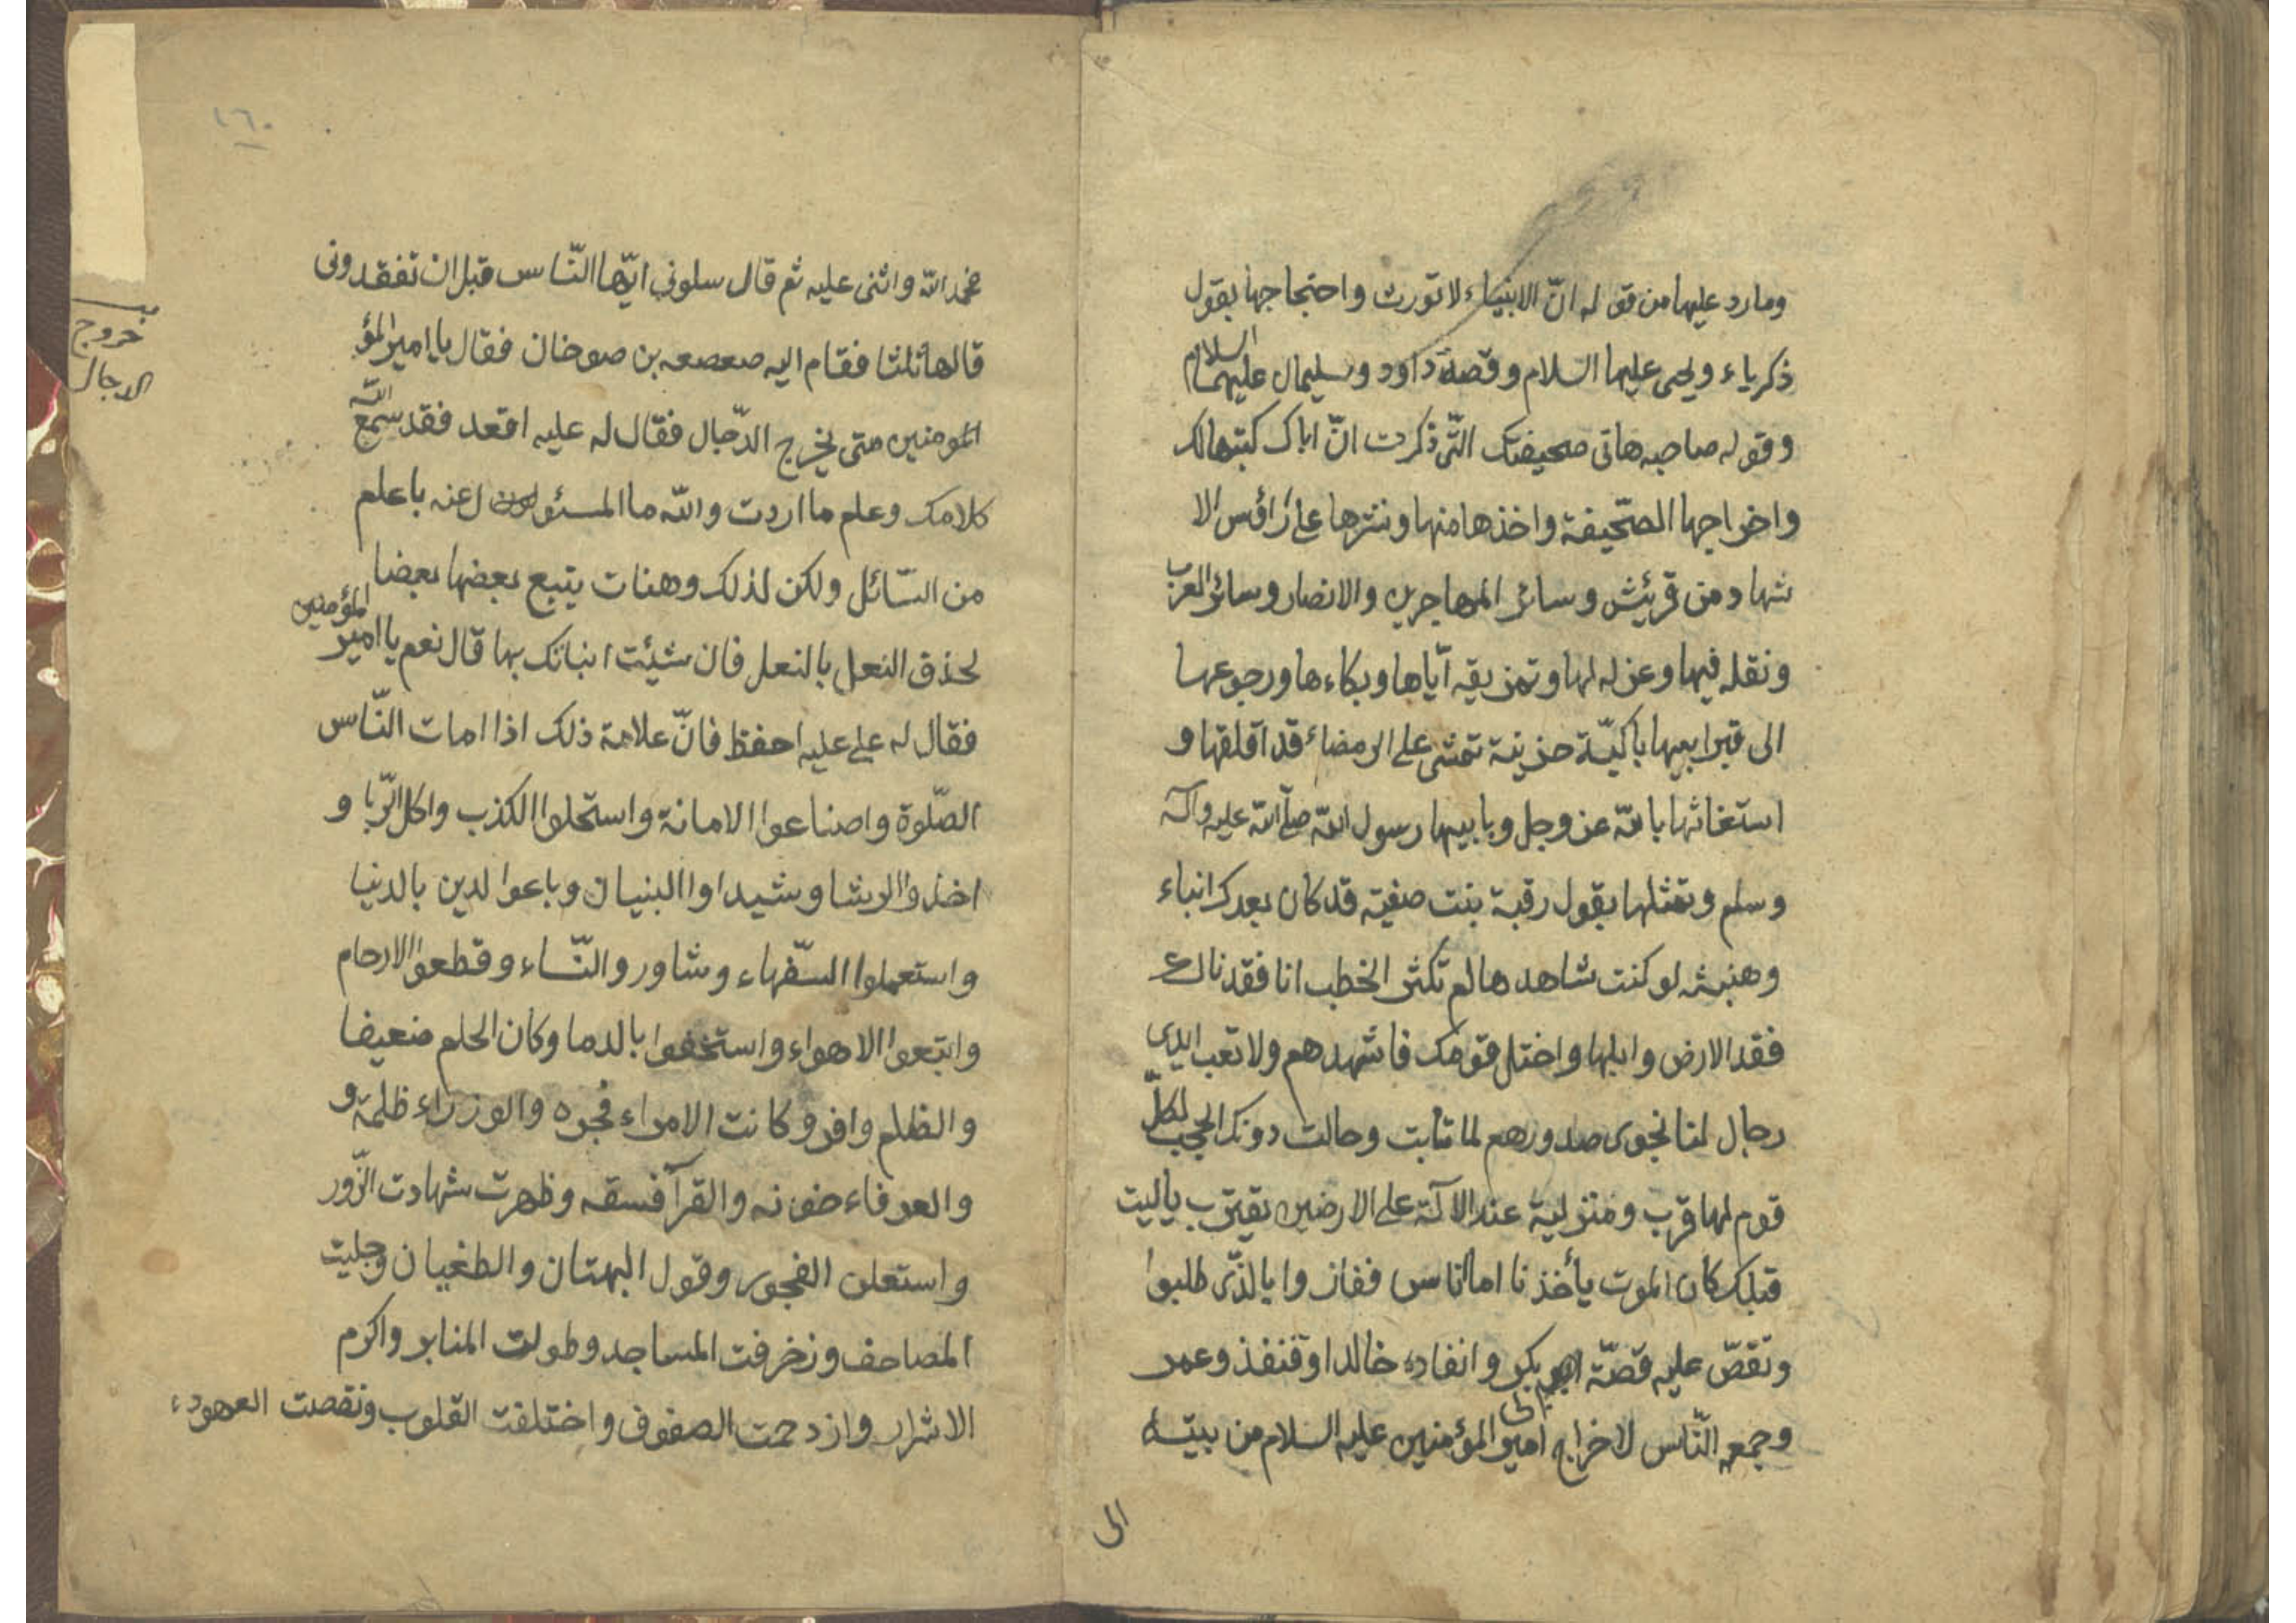 ومارد عليها من قوله انّ الانبياء لا تورث واحتجاجها بقول
ذكرياء ويحيى عليها السّلام وقصة داود وسليمان عليهما السلام
وقوله صاحبه هاتى صحيفتك التّى ذكرت انّ اباك كتبها لك
واخراجها الصّحيفة واخذها منها ونثرها على رؤس الا
شهاد من قريش وسائر المهاجرين والانصار وسائر العرب
ونقله فيها وعزله لها وتمزيقه ايّاها وبكاءها ورجوعها
الى قبر ابيها باكيّة حزينة تمشى على الرمضاء قد اقلقها و
استغاثها بالله عز وجل وبابيها رسول الله صلّى الله عليه وآله
وسلم وتمثلها بقول رقية بنت صفيّة قد كان بعدك انباء
وهنبثه لو كنت شاهدها لم تكثر الخطب انا فقدناك
فقد الارض وابلها واختل قومك فاشهدهم ولا تعب ابدى
رجال لنا نجوى صدورهم لما مابت وحالت دونك الحجب لكلّ
قوم لها قرب ومنزلية عند الاله على الارضين يقترب ياليت
قبلك كان الموت يأخذنا اما اناس ففازوا بالذّى طلبوا
وتقصّ عليه قصّة ابى بكر وانفاده خالدا وقنفذ وعمر
وجمعه النّاس لاخراج امير المؤمنين عليه السلام من بيته
الى
١٦٠
خروج
الدجال
فحمد الله واثنى عليه ثم قال سلونى ايّها النّاس قبل ان تفقدونى
قالها ثلثا فقام اليه صعصعه بن صوخان فقال يا امير المؤ
المومنين متى يخرج الدّجال فقال له عليه اقعد فقد سمع الله
كلامك وعلم ما اردت والله ما المسئول عنه باعلم
من السّائل ولكن لذلك وهنات يتبع بعضها بعضا
لحذق النعل بالنعل فان شيئت انباتك بها قال نعم يا امير المؤمنين
فقال له على عليه احفظ فانّ علامة ذلك اذا امات النّاس
الصّلوة واضاعوا الامانة واستحلوا الكذب واكل الرّبا و
اخذوا الرشا وشيداوا البنيان وباعوا لدين بالدنيا
واستعملوا السّفهاء وشاورو النّساء وقطعوا الارحام
واتبعوا الاهواء واستخفوا بالدما وكان الحلم ضعيفا
والظلم وافر وكانت الامراء فجره والوزراء ظلمة و
والعرفاء خونه والقرآ فسقه وظهرت شهادت الزّور
واستعلن الفجور وقول البهتان والطغيان وحليت
المصاحف وزخرفت المساجد وطولت المنابر واكرم
الاشرار وازدحمت الصفوف واختلفت القلوب ونقصت العهود